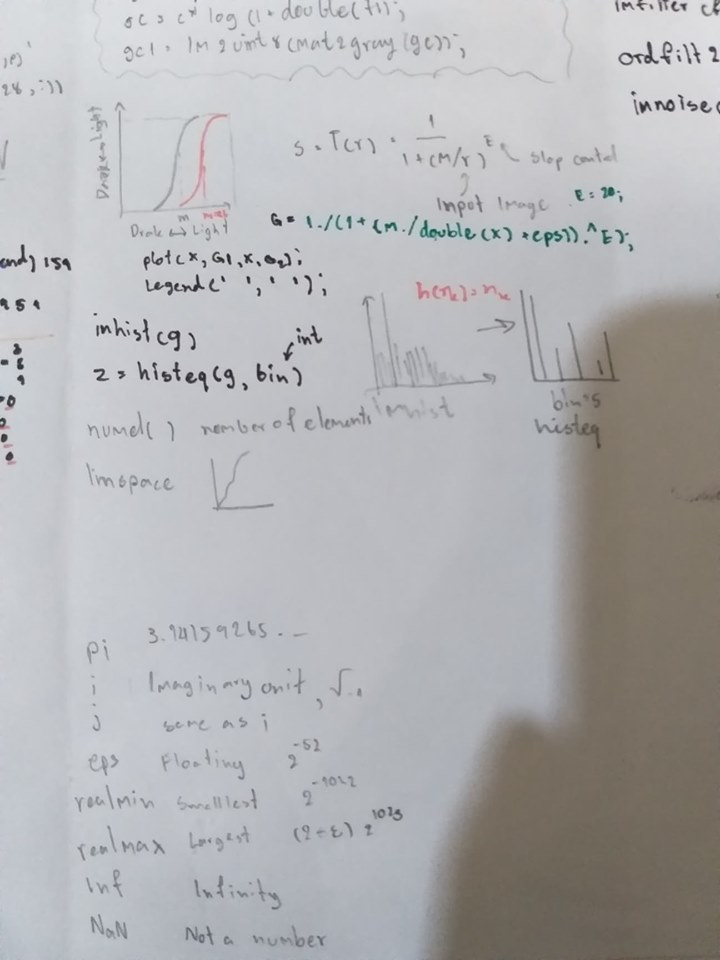 gc = c * log (1 + double(f));
gc1 = im2uint8 (mat2gray (gc));
imfilter
ordfilt2
innoise(
28, :))
Drak ↔ Light
m
Drak ↔ Light
s = T(r) = 1 / 1 + (m/r)^E
slop contol
Inpot Image
E = 20;
G = 1./(1 + (m./double(x) + eps)).^E);
and) 159
plot(x, G1, x, G2);
Legend(' ', ' ');
h(rk) = nk
inhist(g)
int
z = histeq(g, bin)
imhist
bin=5
histeq
numel( ) nember of elements
linspace
pi 3.14159265...
i Imaginary onit, √-1
j same as i
eps Floating 2^-52
realmin Smalllest 2^-1022
realmax Largest (2-ε) 2^1023
Inf Infinity
NaN Not a number